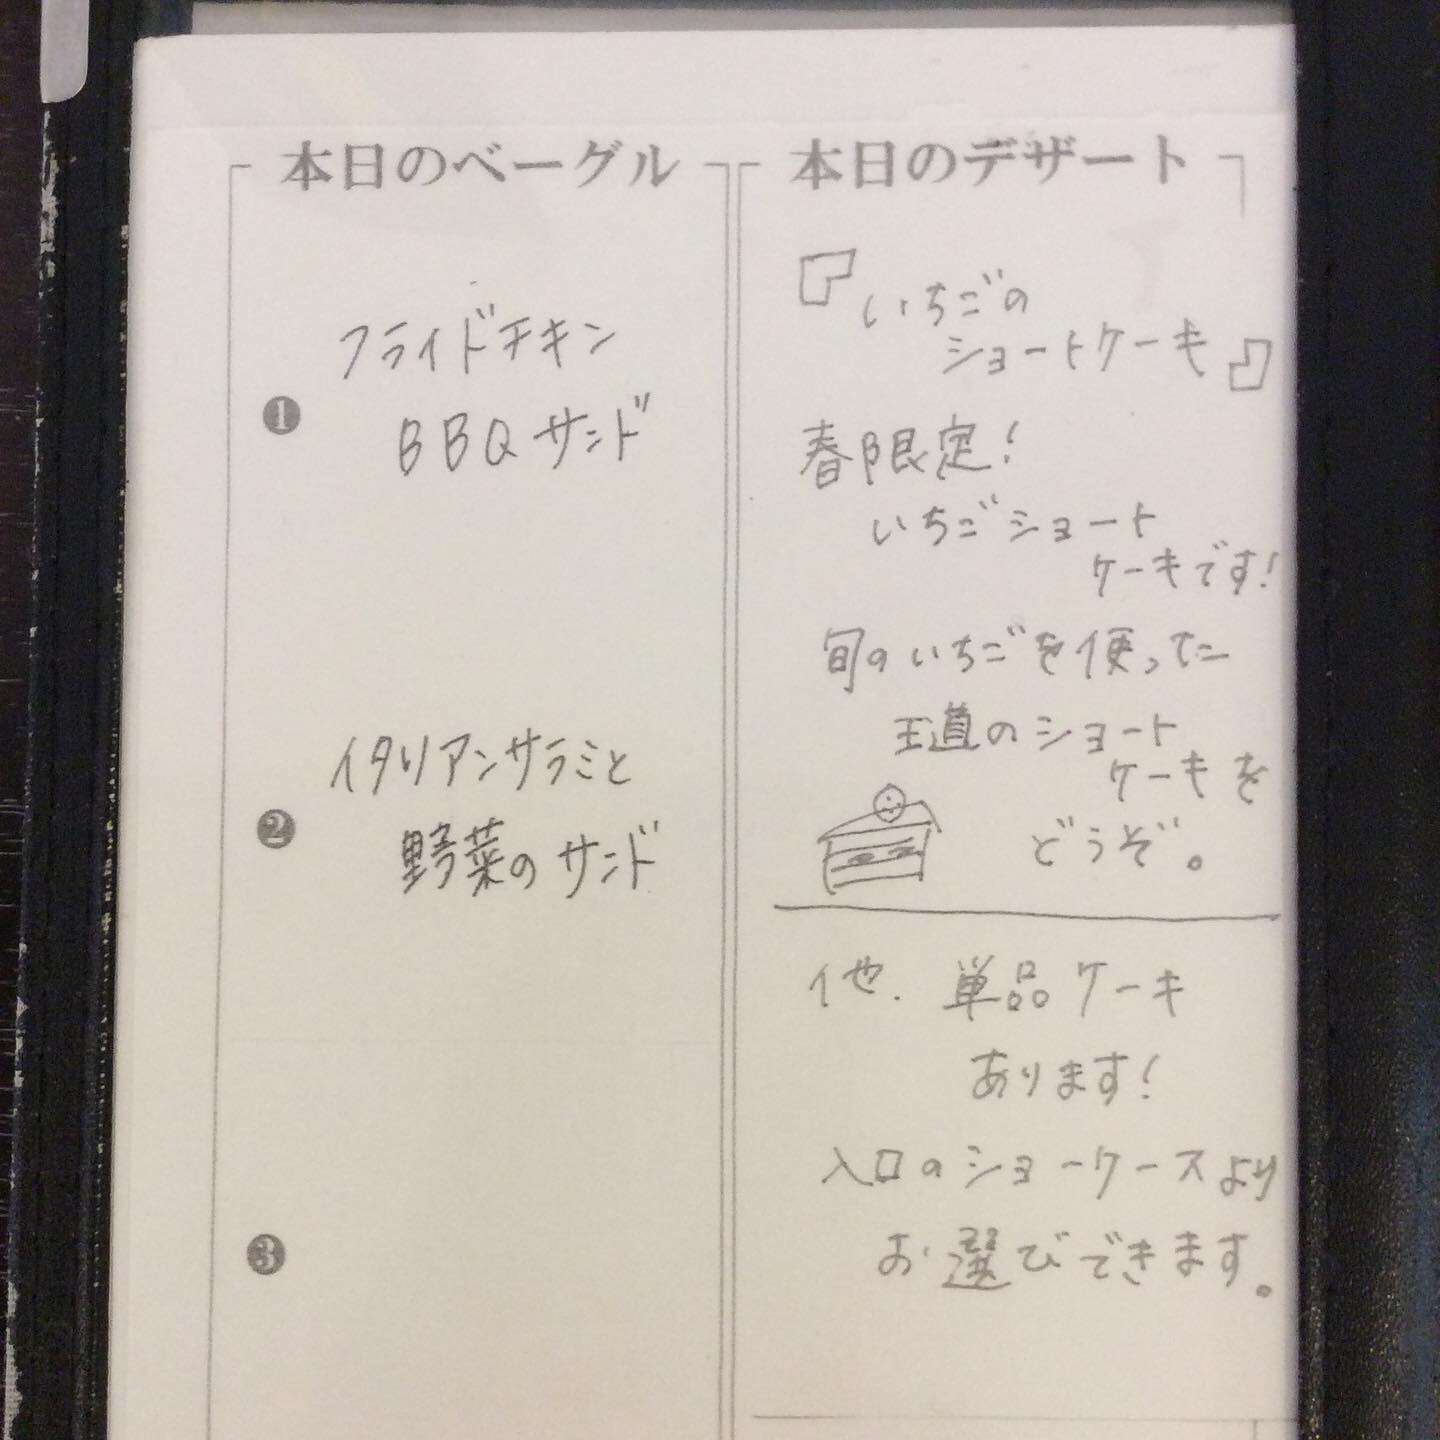 本日のベーグル
❶
フライドチキン
BBQサンド
❷
イタリアンサラミと
野菜のサンド
❸
本日のデザート
『いちごの
ショートケーキ』
春限定!
いちごショート
ケーキです!
旬のいちごを使った
王道のショート
ケーキを
どうぞ。
他、単品ケーキ
あります!
入口のショーケースより
お選びできます。